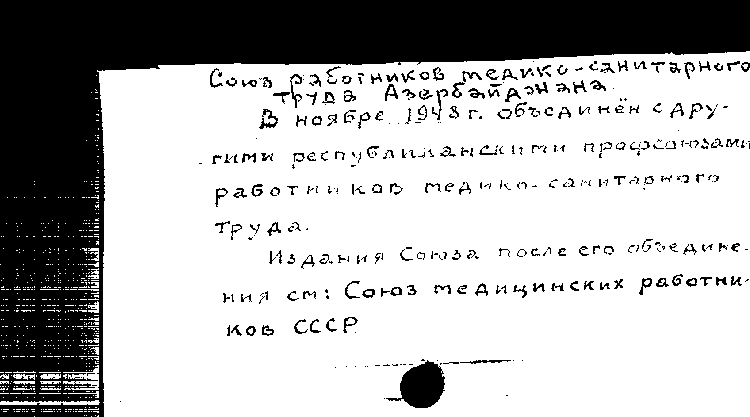 Союз работников медико-санитарного
труда Азербайджана
В ноябре 1948 г. объединён с дру-
гими республиканскими профсоюзами
работников медико-санитарного
труда.
Издания Союза после его объедине-
ния см: Союз медицинских работни-
ков СССР